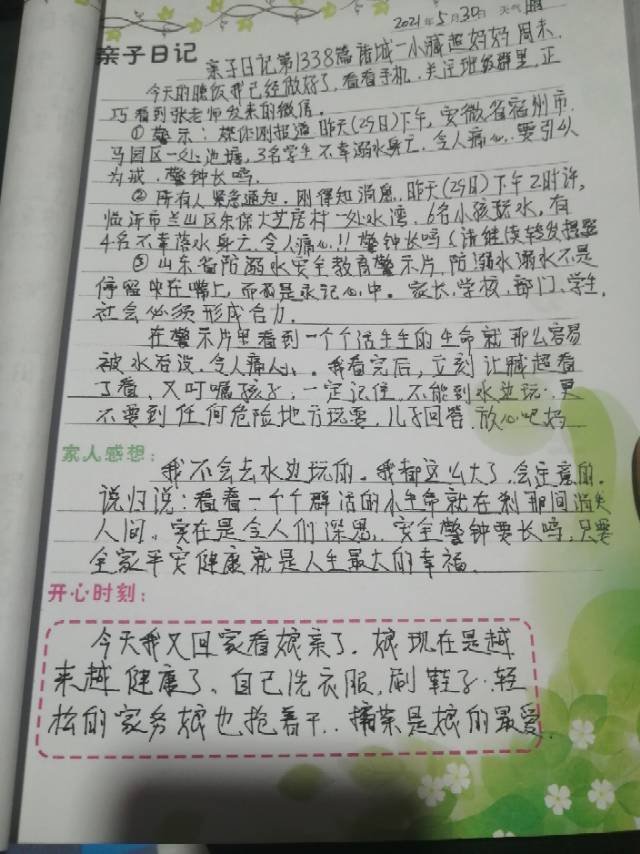 2021年5月30日 天气 晴
亲子日记
亲子日记第1338篇诸城一小臧超妈妈 周末.
今天的晚饭我已经做好了,看看手机,关注班级群里,正
巧看到张老师发来的微信。
①警示:媒体刚报道,昨天(29日)下午,安徽省宿州市.
马园区一处池塘,3名学生不幸溺水身亡.令人痛心.要引以
为戒,警钟长鸣.
②所有人 紧急通知.刚得知消息,昨天(29日)下午2时许,
临沂市兰山区东保大芝房村一处水湾,6名小孩玩水,有
4名不幸落水身亡.令人痛心!!警钟长鸣(请继续转发提醒
③山东省防溺水安全教育警示片,防溺水溺水不是
停留中在嘴上,而是永记心中。家长,学校,部门,学生,
社会必须形成合力.
在警示片里看到一个个活生生的生命就那么容易
被水吞没.令人痛心。我看完后,立刻让臧超看
了看,又叮嘱孩子:一定记住,不能到水边玩.更
不要到任何危险地方玩耍,儿子回答,放心吧妈
家人感想:
我不会去水边玩的.我都这么大了,会注意的.
说归说:看着一个个鲜活的小生命就在刹那间消失
人间。实在是令人们深思.安全警钟要长鸣,只要
全家平安健康就是人生最大的幸福.
开心时刻:
今天我又回家看娘亲了.娘现在是越
来越健康了、自己洗衣服,刷鞋子.轻
松的家务娘也抢着干..摘菜是娘的最爱.